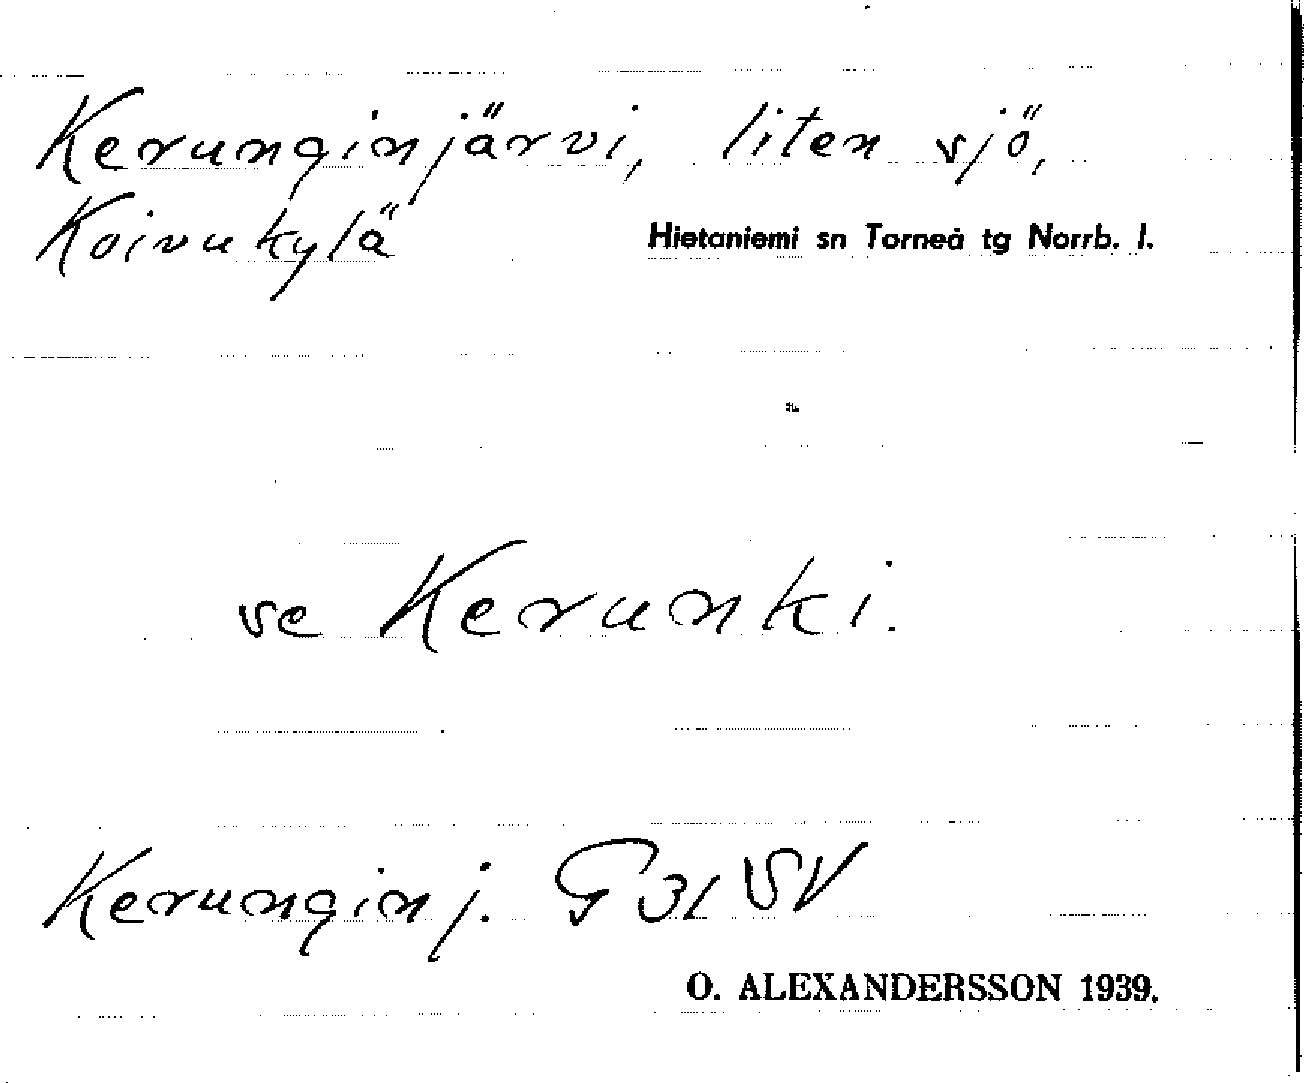 Kerunginjärvi, liten sjö,
Koivukylä Hietaniemi sn Torneå tg Norrb. l.
se Kerunki.
Kerunginj. G 31 SV
O. ALEXANDERSSON 1939.